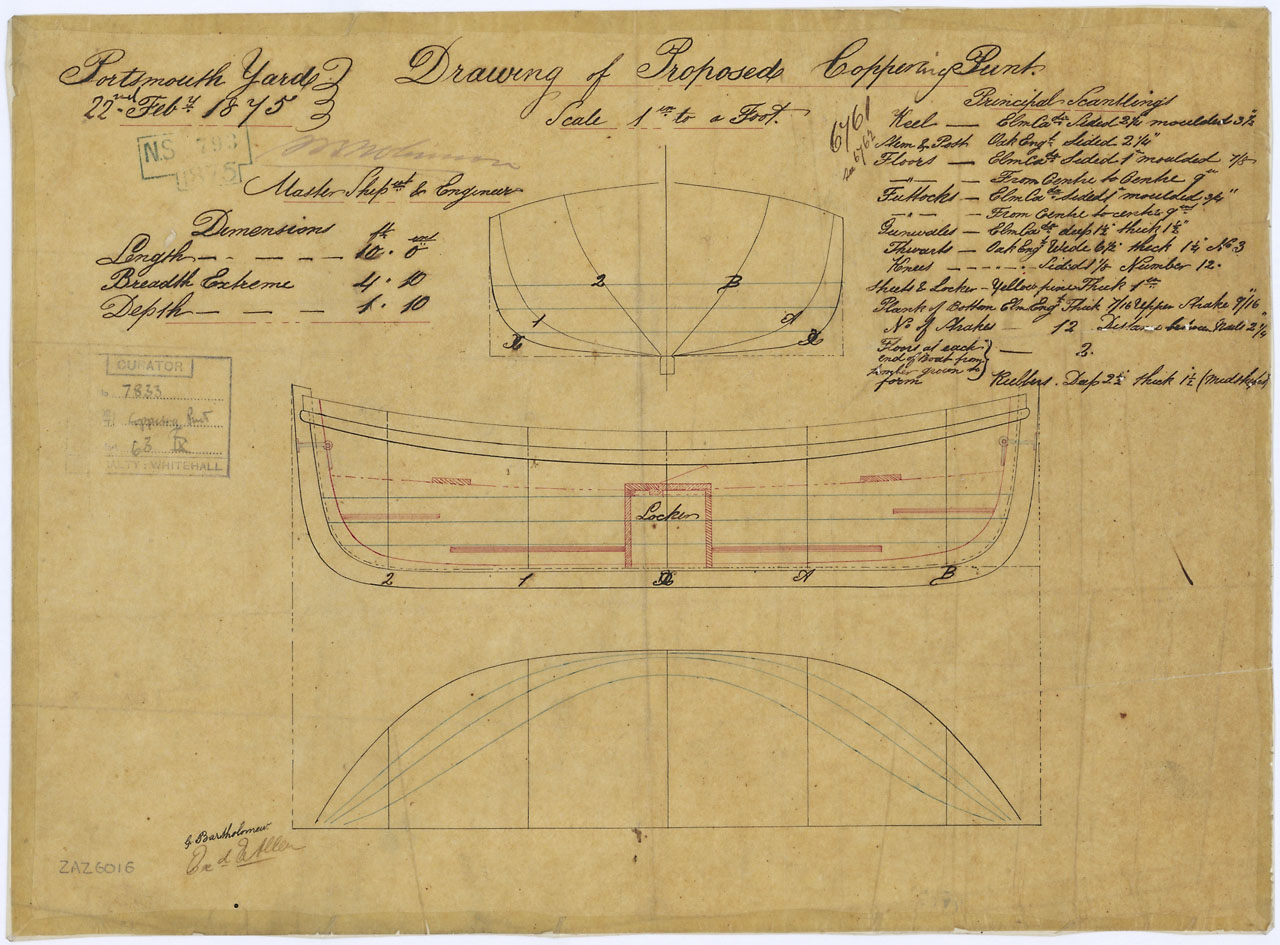 Portsmouth Yard
22nd Feby 1875
Drawing of Proposed Coppering Punt.
Scale 1 in to a Foot.
6761
6762
N.S 793
1875
Master Shipwt & Engineer
Dimensions
ft ins
Length — 10 . 0
Breadth Extreme 4 . 10
Depth — 1 . 10
Principal Scantlings
Keel — Elm Cada Sided 2½ moulded 3½
Stem & Post Oak Engh Sided 2¼"
Floors — Elm Cada Sided 1" moulded 7/8
— " — From Centre to Centre 9"
Futtocks — Elm Cada Sided 1" moulded ¾"
— " — From Centre to centre 9 ins
Gunwales — Elm Cada deep 1½ thick 1½"
Thwarts — Oak Engh Wide 6½" thick 1¼ No 3
Knees — Sided 1⅛ Number 12.
Sheets & Locker - Yellow pine Thick 1 in
Plank of Bottom Elm Engh Thick 7/16 Upper Strake 9/16"
No of Strakes — 12 Distance between Nails 2¼"
Floors at each
end of Boat from
timber grown to
form
— 2.
Rubbers. Deep 2½" thick 1½ (midships)
2
B
1
A
CURATOR
7833
Coppering Punt
63 IX
ALTY: WHITEHALL
Locker
2
1
A
B
G Bartholomew
Exd E Allen
ZAZ6016